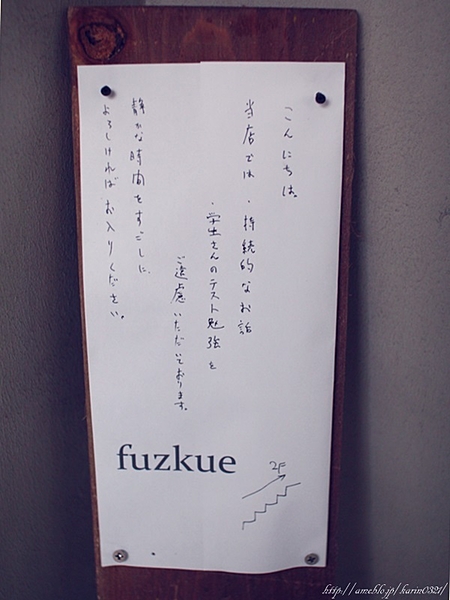 こんにちは。
当店では ・持続的なお話
・学生さんのテスト勉強を
ご遠慮いただいております。
静かな時間をすごしに、
よろしければお入りください。
fuzkue
2F
http://ameblo.jp/karin0321/